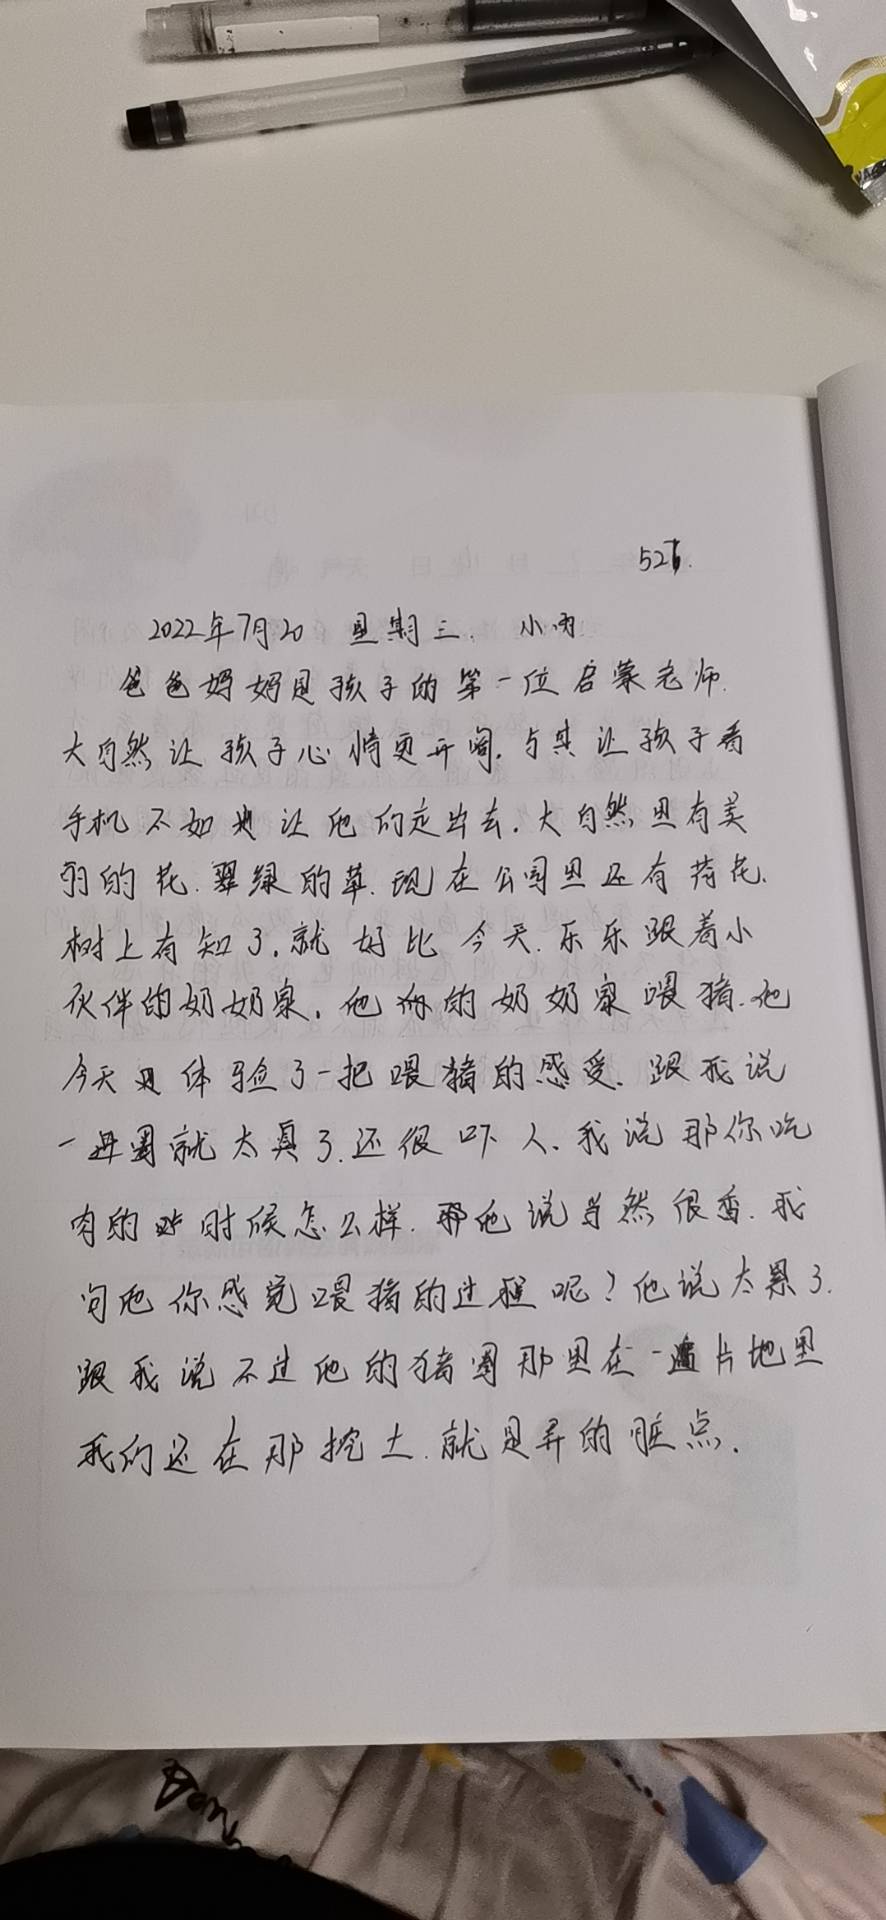 527.
2022年7月20 星期三. 小雨
爸爸妈妈是孩子的第一位启蒙老师.
大自然让孩子心情更开阔.与其让孩子看
手机不如让他们走出去.大自然里有美
丽的花.翠绿的草.现在公园里还有荷花.
树上有知了.就好比今天.乐乐跟着小
伙伴的奶奶家.他们的奶奶家喂猪.他
今天体验了一把喂猪的感受.跟我说
一进圈就太臭了.还很吓人.我说那你吃
肉的时候怎么样.他说当然很香.我
问他你感觉喂猪的过程呢?他说太累了.
跟我说不过他的猪圈那里在一片地里
我们还在那挖土.就是弄的脏点.